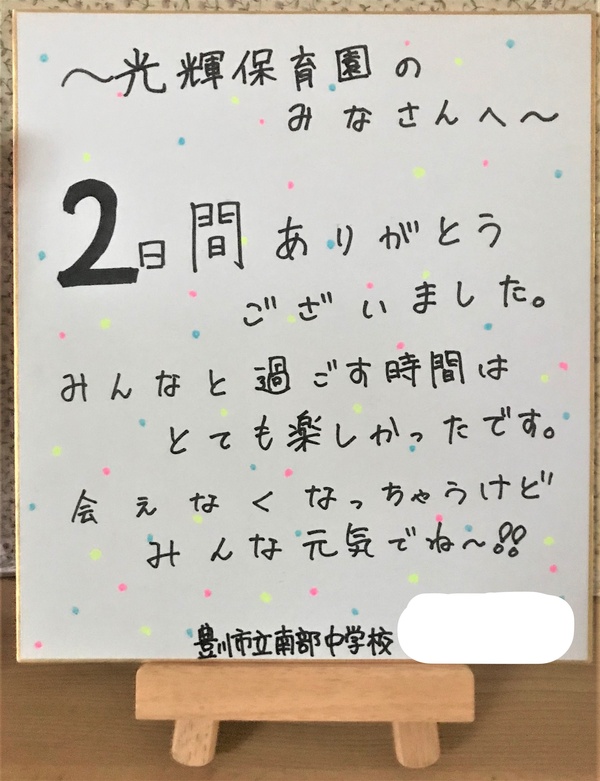 ～光輝保育園の
みなさんへ～
2日間ありがとう
ございました。
みんなと過ごす時間は
とても楽しかったです。
会えなくなっちゃうけど
みんな元気でね～!!
豊川市立南部中学校